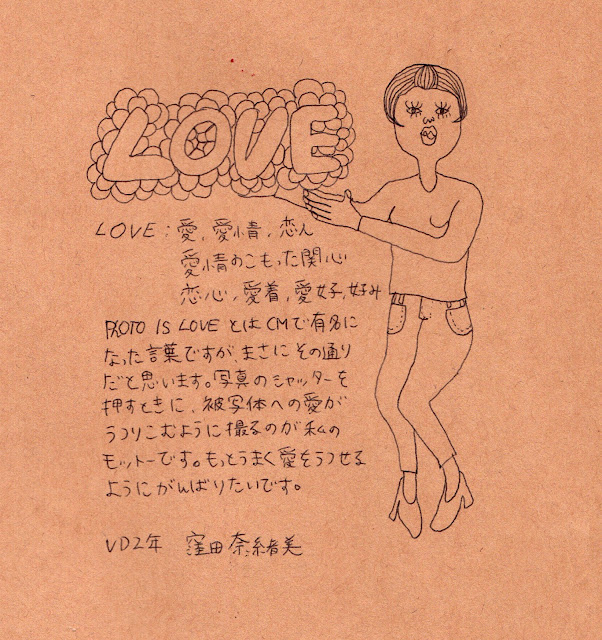 LOVE
LOVE：愛，愛情，恋人
愛情のこもった関心
恋心，愛着，愛好，好み
PHOTO IS LOVE とはCMで有名に
なった言葉ですが、まさにその通り
だと思います。写真のシャッターを
押すときに、被写体への愛が
うつりこむように撮るのが私の
モットーです。もっとうまく愛をうつせる
ようにがんばりたいです。
VD2年 窪田奈緒美